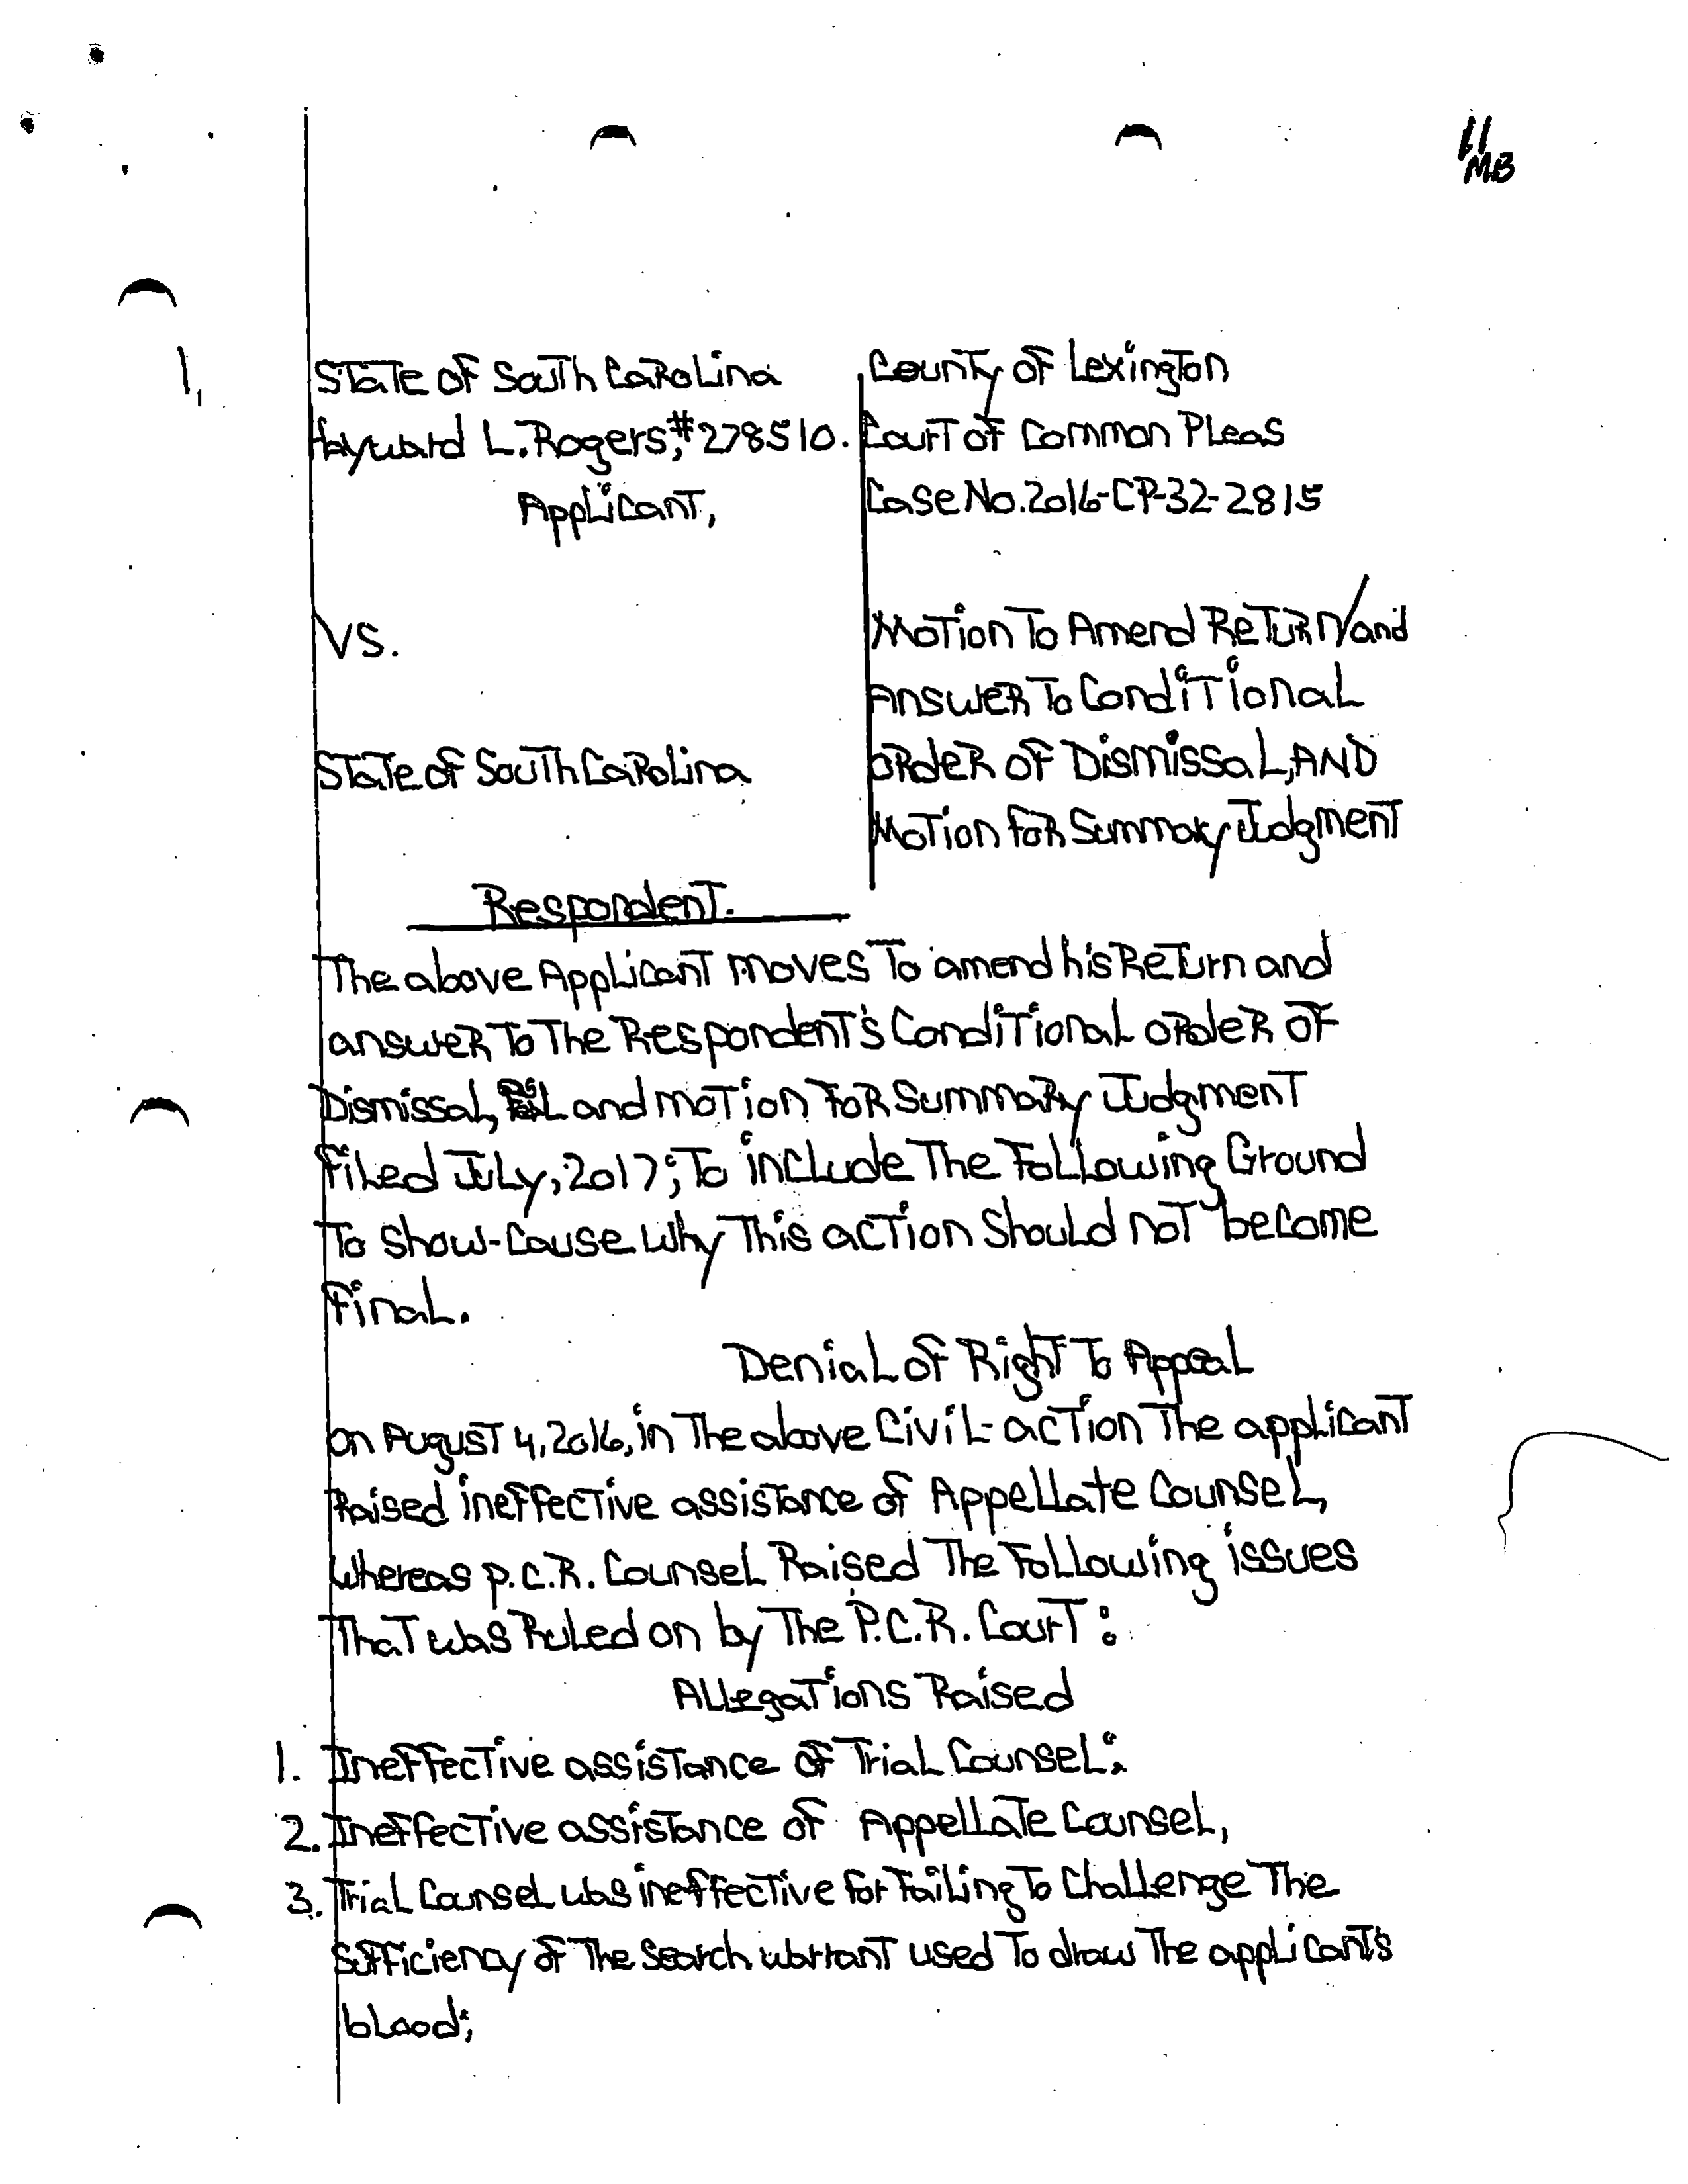 11
MB
1.
State of South Carolina
Hayward L. Rogers, #278510.
Applicant,
County of Lexington
Court of Common Pleas
Case No. 2016-CP-32-2815
vs.
Motion To Amend Return/and
Answer To Conditional
Order of Dismissal, AND
Motion for Summary Judgment
State of South Carolina
Respondent.
The above Applicant moves To amend his Return and
answer To The Respondent's Conditional order of
Dismissal, and motion for Summary Judgment
filed July, 2017; To include The Following Ground
To show-cause why This action Should not become
Final.
Denial of Right To Appeal
on August 4, 2016, in The above Civil-action The applicant
Raised ineffective assistance of Appellate Counsel,
whereas P.C.R. Counsel Raised The Following issues
That was Ruled on by The P.C.R. Court:
Allegations Raised
1. Ineffective assistance of Trial Counsel;
2. Ineffective assistance of Appellate Counsel,
3. Trial Counsel was ineffective for Failing To Challenge The
Sufficiency of The Search warrant used To draw The applicant's
blood;